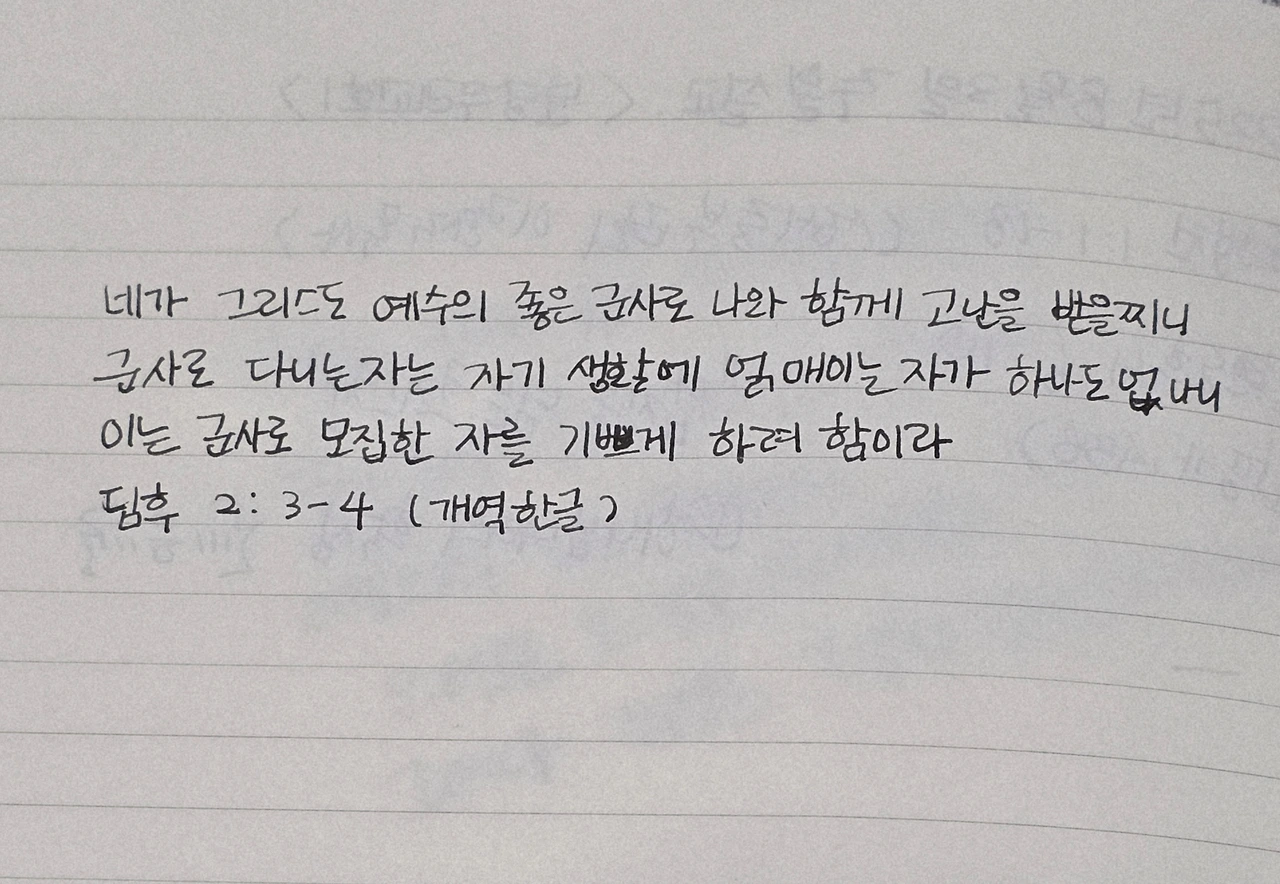 네가 그리스도 예수의 좋은 군사로 나와 함께 고난을 받을찌니
군사로 다니는자는 자기 생활에 얽매이는 자가 하나도 없나니
이는 군사로 모집한 자를 기쁘게 하려 함이라
딤후 2: 3-4 (개역한글)